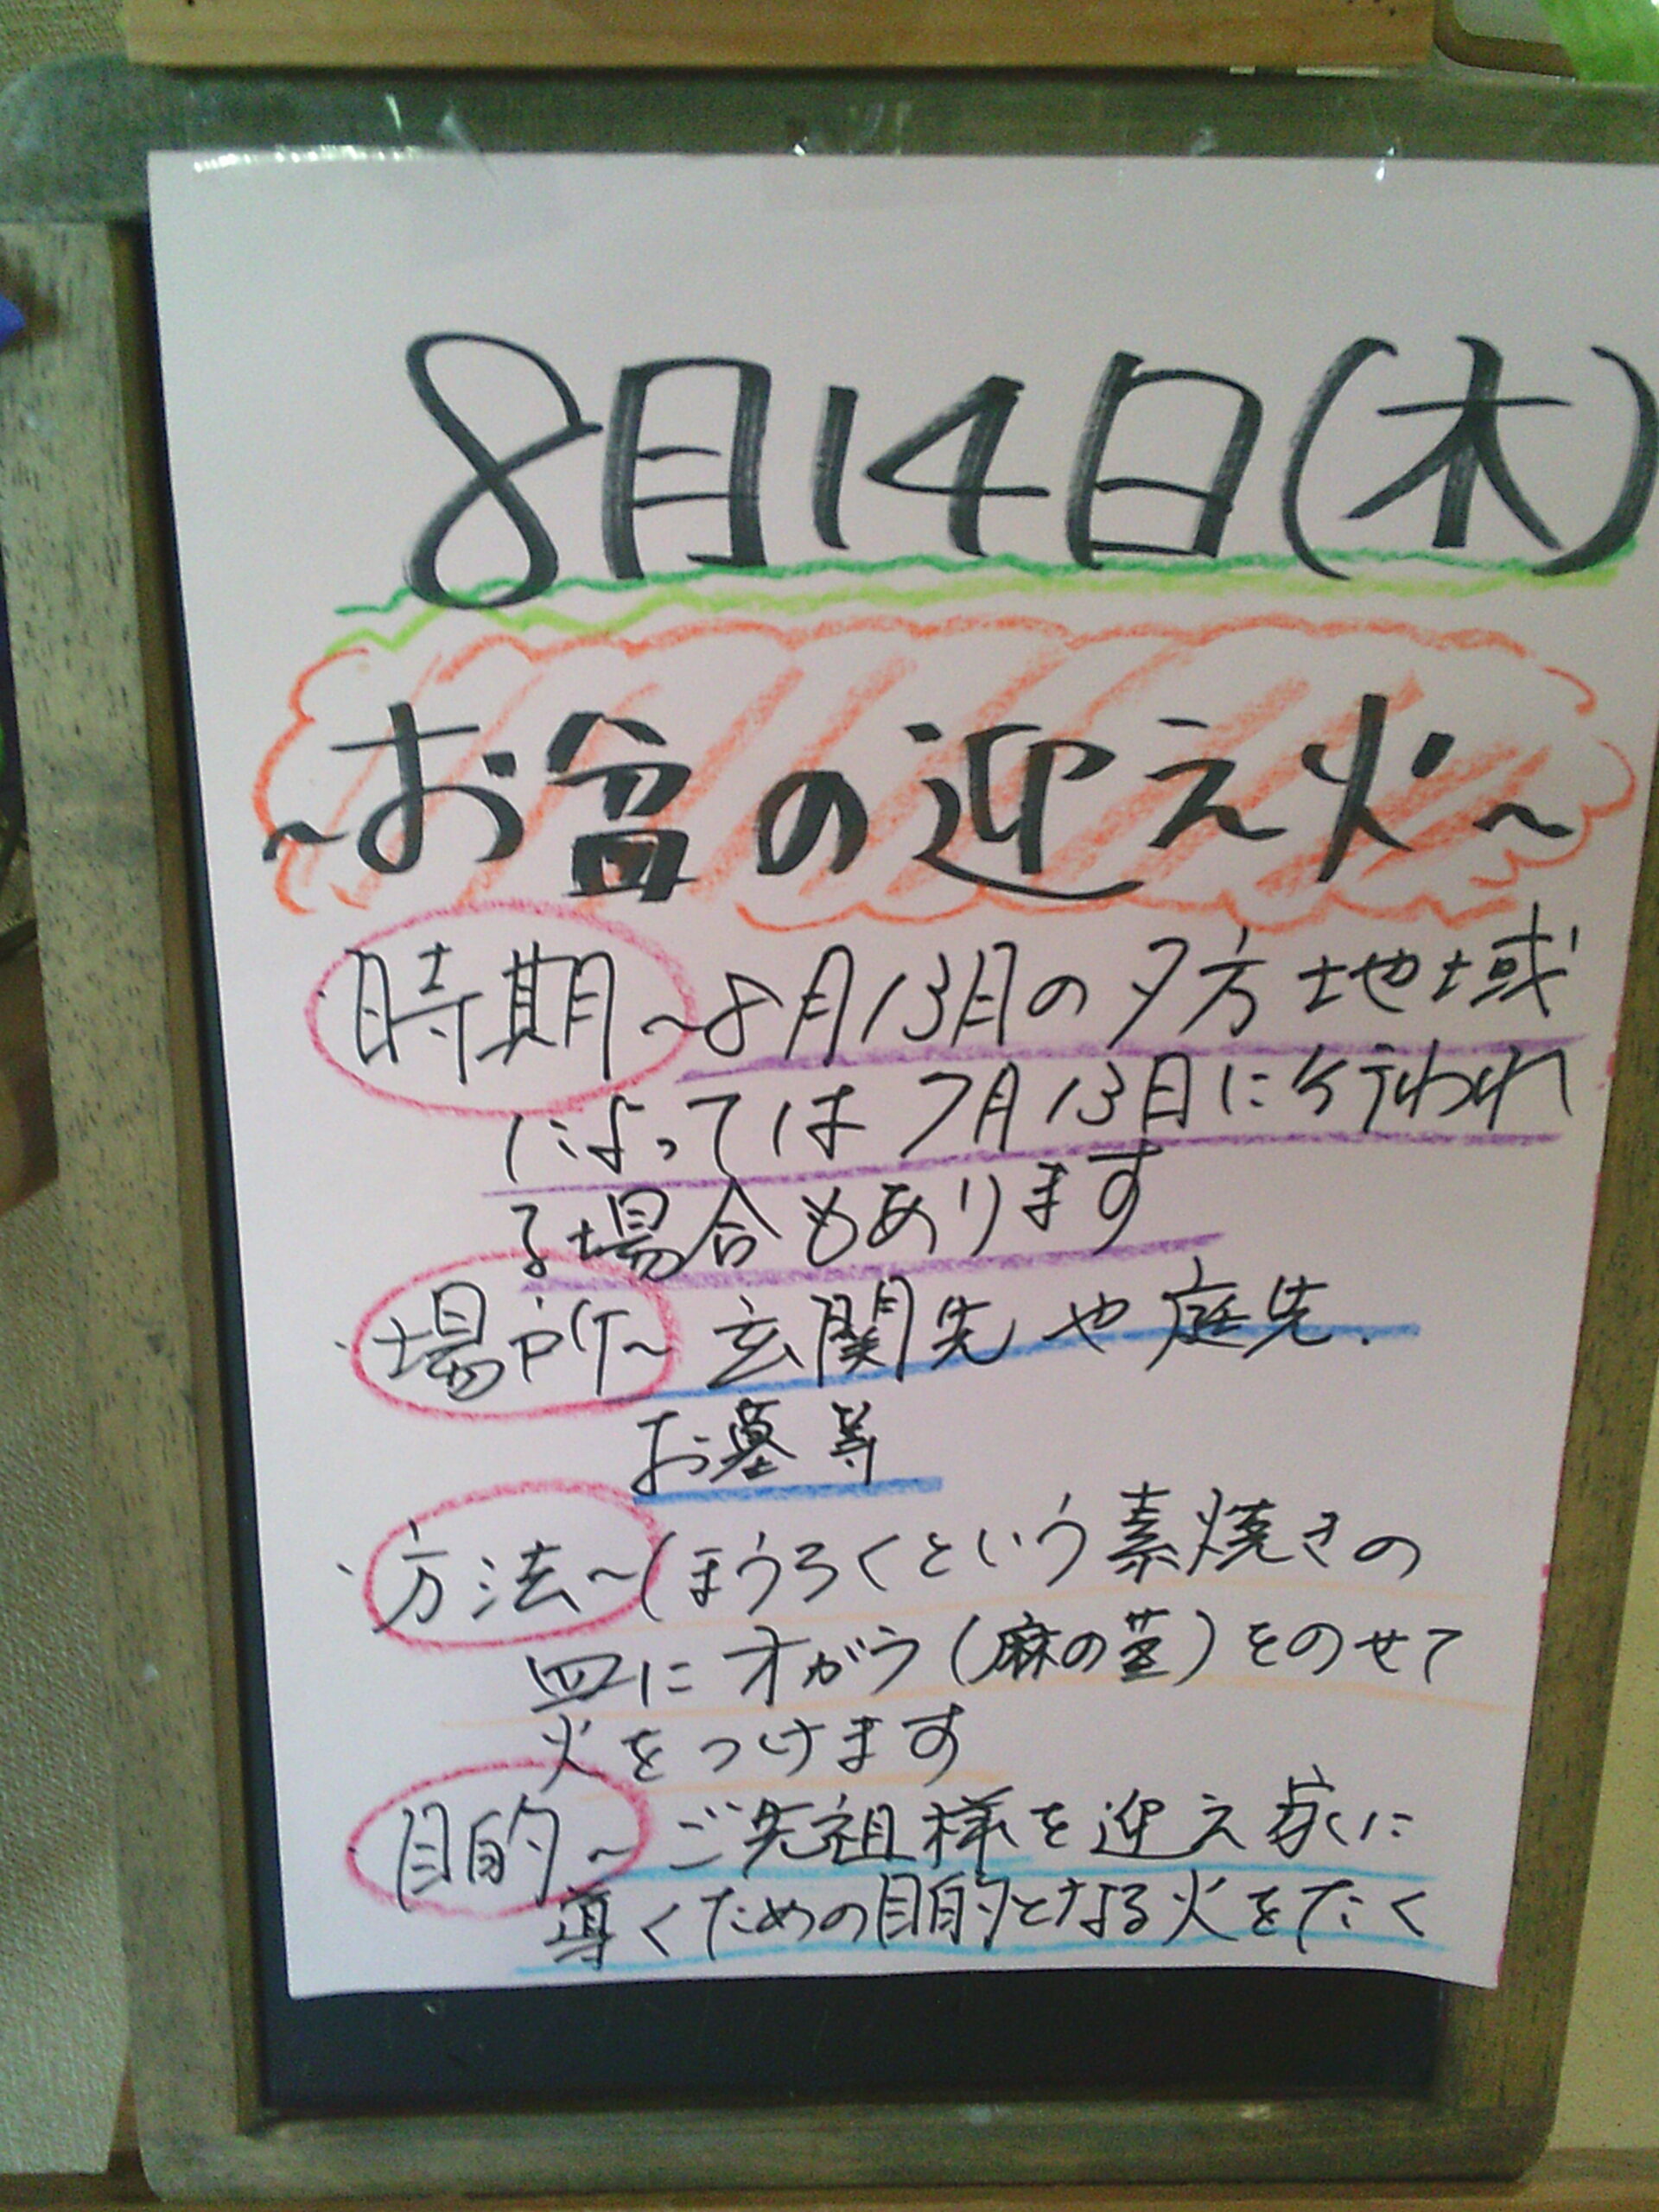 8月14日(木)
~お盆の迎え火~
・時期~8月13日の夕方地域
によっては7月13日に行われ
る場合もあります
・場所~玄関先や庭先.
お墓等
・方法~(ほうろくという素焼きの
皿にオガラ(麻の茎)をのせて
火をつけます
・目的~ご先祖様を迎え家に
導くための目的となる火をたく